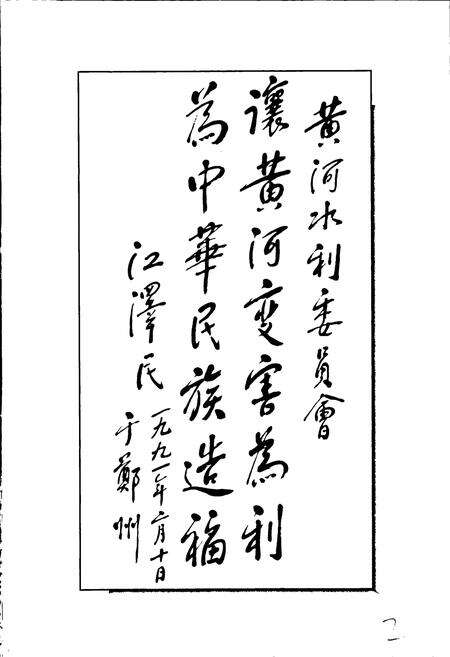 黄河水利委員會
讓黄河变害為利
為中華民族造福
江澤民
一九九一年二月十日
于鄭州
2